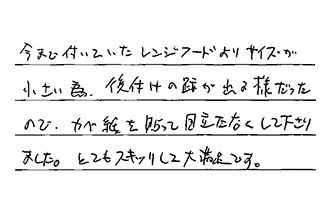 今まで付いていたレンジフードよりサイズが
小さい為、後付けの跡が出る様だった
ので、カベ紙を貼って目立たなくして下さり
ました。とてもスッキリして大満足です。